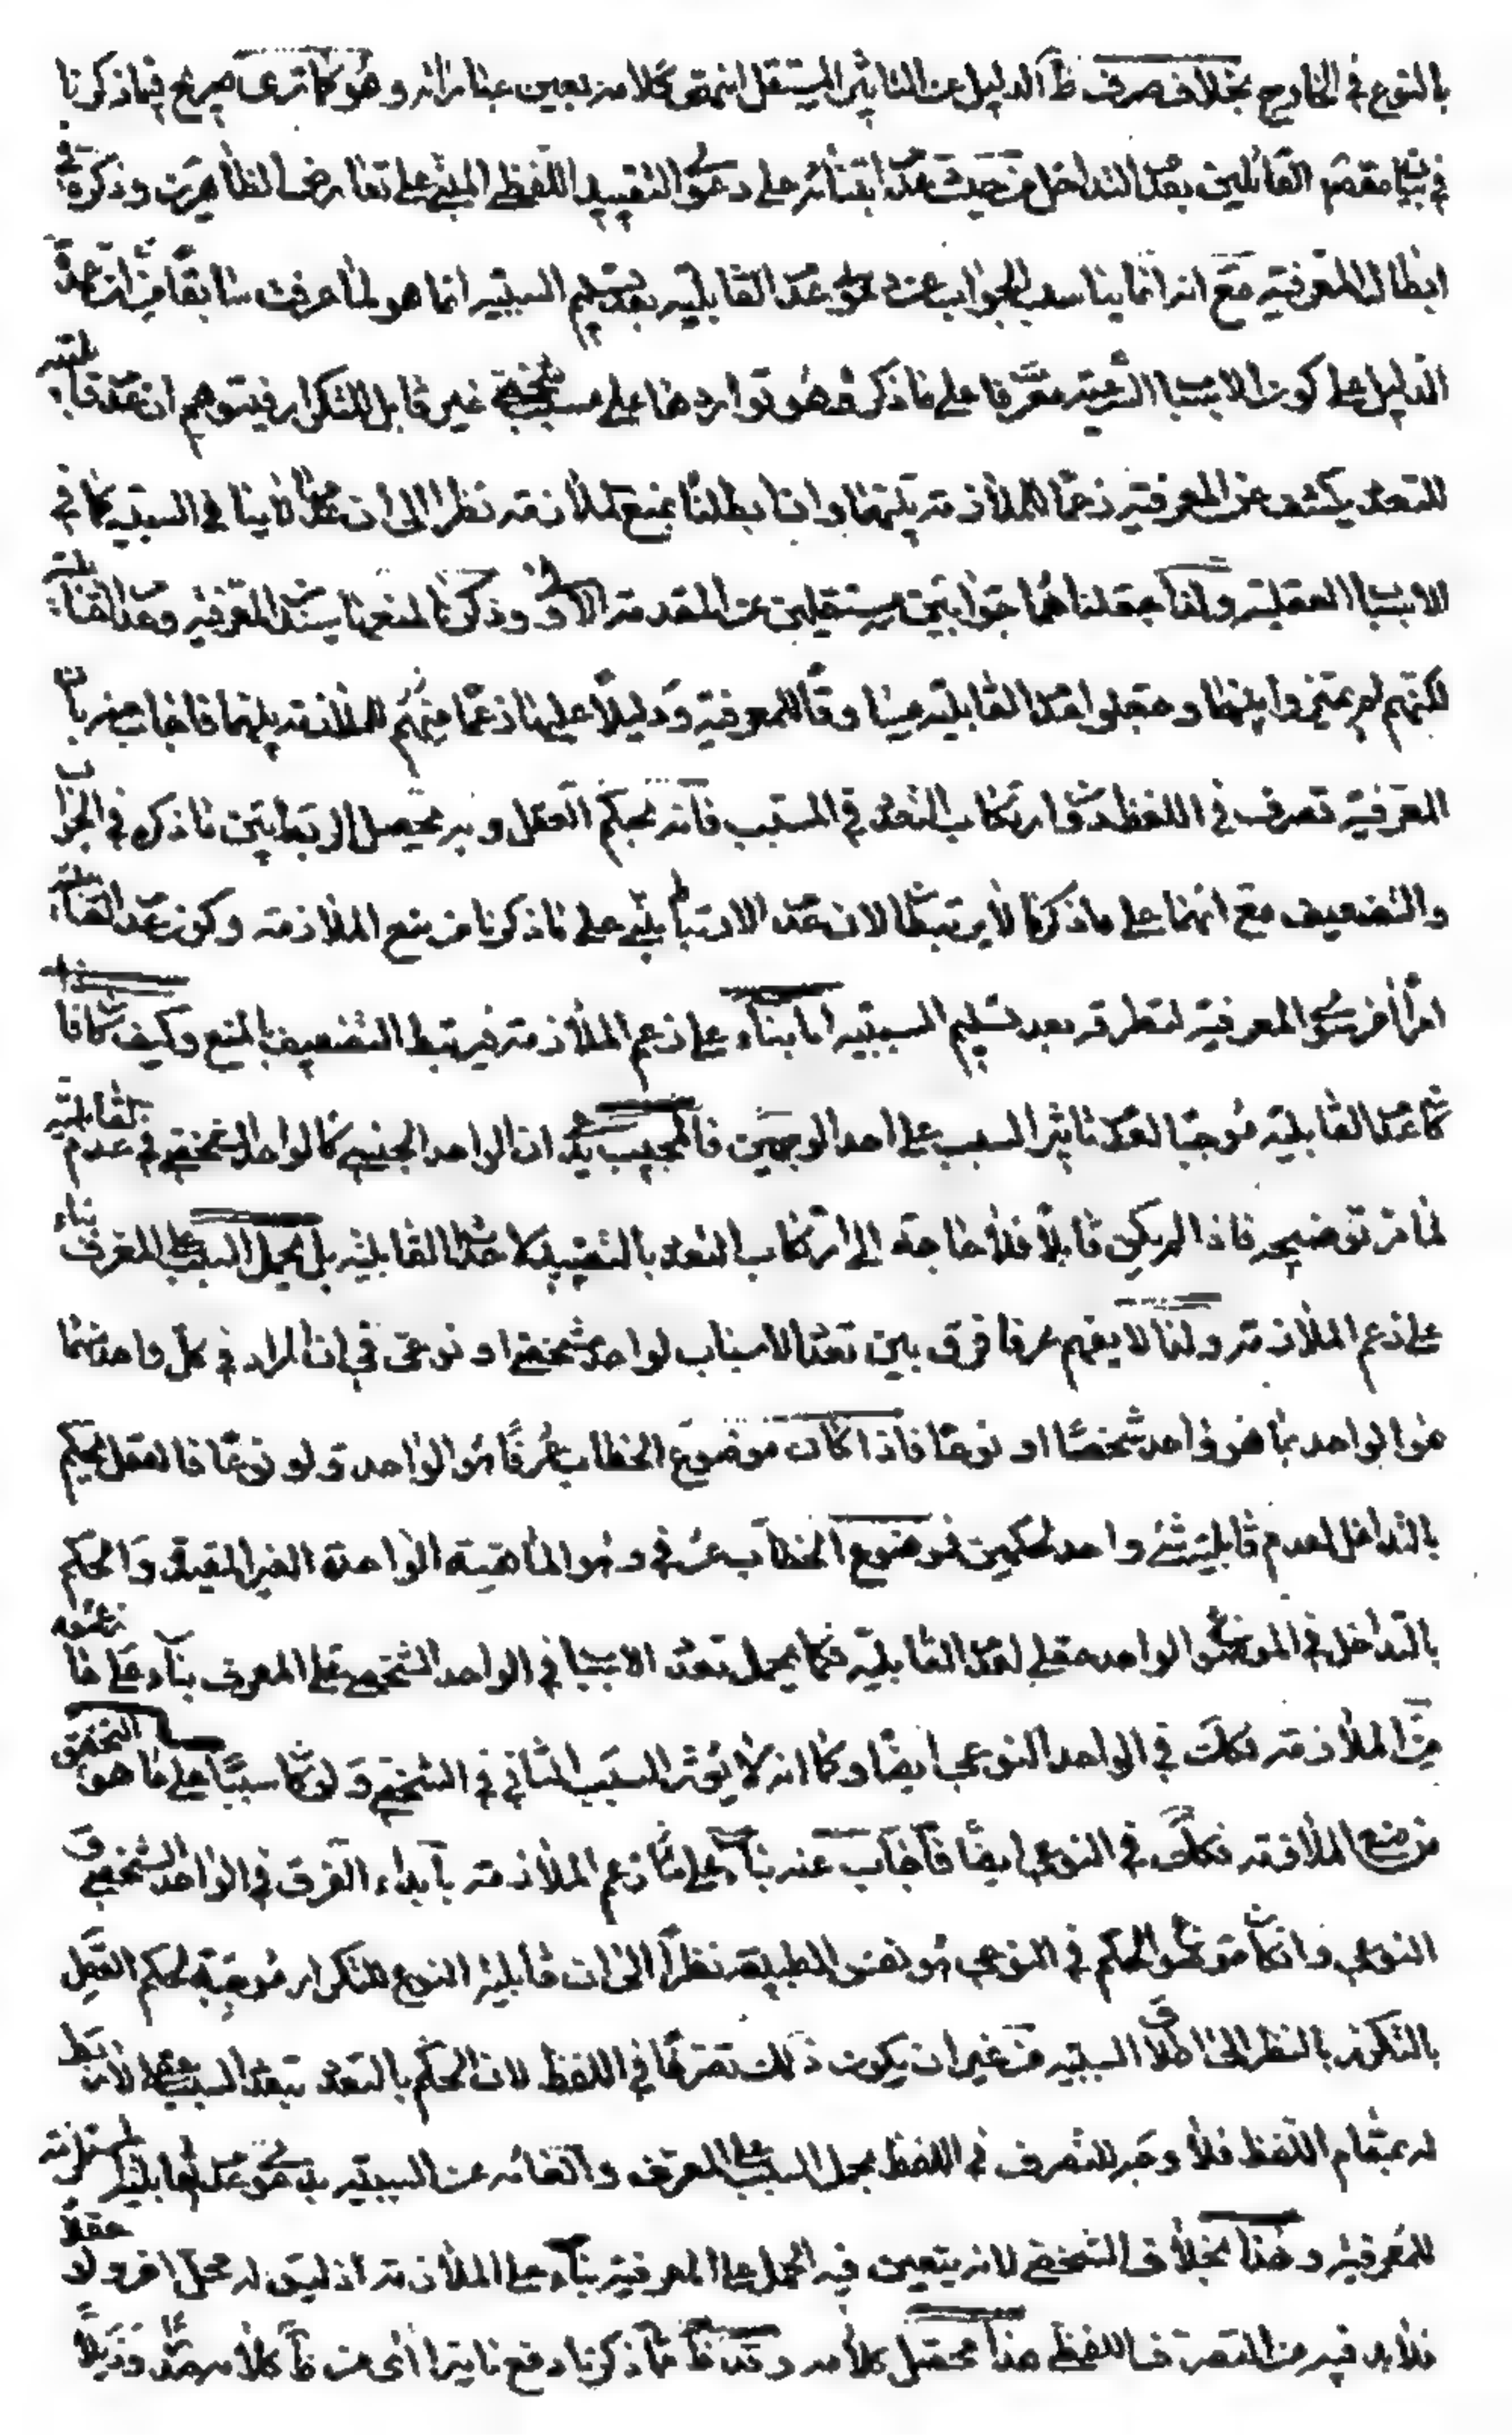 بالنوع في الخارج بخلاف صرف ظ الدليل عن التاثير المستقل انتهى كلامه بعين عباراته و هو كما ترى صريح فيما ذكرنا
في بيان مقصد القائلين بعدم التداخل من حيث عدم ابتنائه على دعوى التقييد اللفظي المبني على تعارض الظاهرين و ذكره في
ابطال المعرفية مع انه انما يناسب الجواب عن دعوى عدم القابلية بعد تسليم السببية انما هو لما عرفت سابقا من ان عمدة
الدليل على كون الاسباب الشرعية معرفا على ما ذكروه هو تواردها على مسبب شخصي غير قابل للتكرار فيتوهم ان عدم قابليته
للتعدد يكشف عن المعرفية زعما للملازمة بينهما و انا ابطلنا بمنع الملازمة نظرا الى ان عدمها لا ينافي السببية كما في
الاسباب العقلية و لذا جعلناهما جوابين مستقلين عن المقدمة الاولى و ذكرنا لمنعها سندا المعرفية و عدم القابلية
لكنهم لم يميزوا بينهما و جعلوا عدم القابلية مساوقا للمعرفية و دليلا عليها زعما منهم للملازمة بينهما فاجاب عنه بان
المعرفية تصرف في اللفظ دون ارتكاب التعدد في المسبب فانه بحكم العقل و به يحصل الارتباط بين ما ذكره في الجواب
والتضعيف مع انهما على ما ذكرنا لا يرتبطان لان عدم الارتباط مبني على ما ذكرنا من منع الملازمة و كون عدم القابلية
امرا اخر سوى المعرفية لتطرقه بعد تسليم السببية اما بناء على زعم الملازمة فيرتبط التضعيف بالمنع و كيف كان فاذا
كان عدم القابلية موجبا لعدم تاثير السبب على احد الوجهين فالمجيب يدعي ان الواحد الجنسي كالواحد الشخصي في عدم القابلية
لما مر توضيحه فاذا لم يكن قابلا فلا حاجة الى ارتكاب التعدد بالتقييد بل يحمل السبب على المعرف
على زعم الملازمة و لذا لا يفهم عرفا فرق بين تعدد الاسباب لواحد شخصي او نوعي في ان المراد في كل واحد منهما
هو الواحد بما هو واحد شخصا او نوعا فاذا كان موضوع الخطاب عرفا هو الواحد و لو نوعا فالعقل يحكم
بالتداخل لعدم قابلية شئ واحد لحكمين فموضوع الخطاب عرفي و هو الماهية الواحدة الغير المقيدة و الحكم
بالتداخل في الموضوع الواحد عقلي لعدم القابلية فكما يحمل تعدد الاسباب في الواحد الشخصي على المعرف بناء على ما زعموه
من الملازمة فكذلك في الواحد النوعي ايضا و كما انه لا يؤثر السبب الثاني في الشخصي و لو كان سببا على ما هو التحقيق
من منع الملازمة فكذلك في النوعي ايضا فاجاب عنه بناء على ما زعم الملازمة بابداء الفرق في الواحد الشخصي و
النوعي و ان كان موضوع الحكم في النوعي هو نفس الطبيعة نظرا الى ان قابلية النوع للتكرار موجبة لحكم العقل
بالتكرار بالنظر الى اطلاق السببية من غير ان يكون ذلك تصرفا في اللفظ لان الحكم بالتعدد بتعدد السبب عقلي لا ربط
له بمقام اللفظ فلا وجه للتصرف في اللفظ بحمل السبب على المعرف و الغائه عن السببية بدعوى عدم قابليته المستلزمة
للمعرفية و هذا بخلاف الشخصي لانه يتعين فيه الحمل على المعرفية بناء على الملازمة اذ ليس له محمل اخر و لو عقلا
فلا بد فيه من التصرف في اللفظ هذا محصل كلامه و قد ظهر مما ذكرنا دفع ما يترا اى من ظ كلامه صدرا و ذيلا